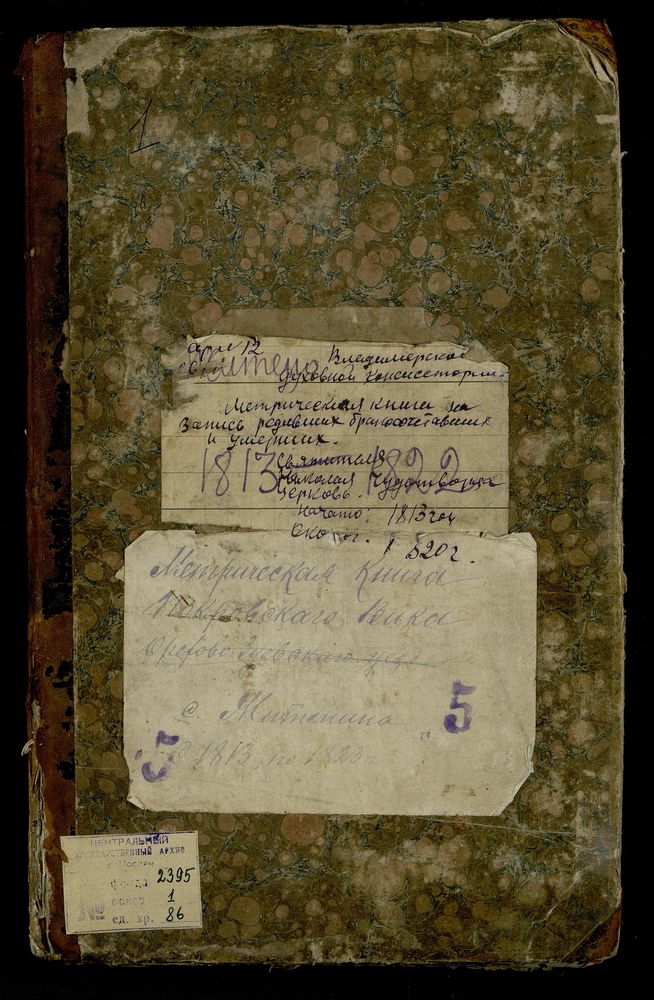 1
Владимерской
Духовной Консистории.
Метрическая книга на
Запись родивших бракосочетавших
и умерших.
1813 1822
Святителя
Николая Чудотворца
Церковь.
Начато: 1813 год
1820 г.
Метрическая Книга
Покровскаго Вика
Орехово Зуевскаго уезд
с. Митенино
5
с 1813 по 1823 г
5
ЦЕНТРАЛЬНЫЙ
ГОСУДАРСТВЕННЫЙ АРХИВ
г. Москвы
фонда 2395
опись 1
№ ед. хр. 86